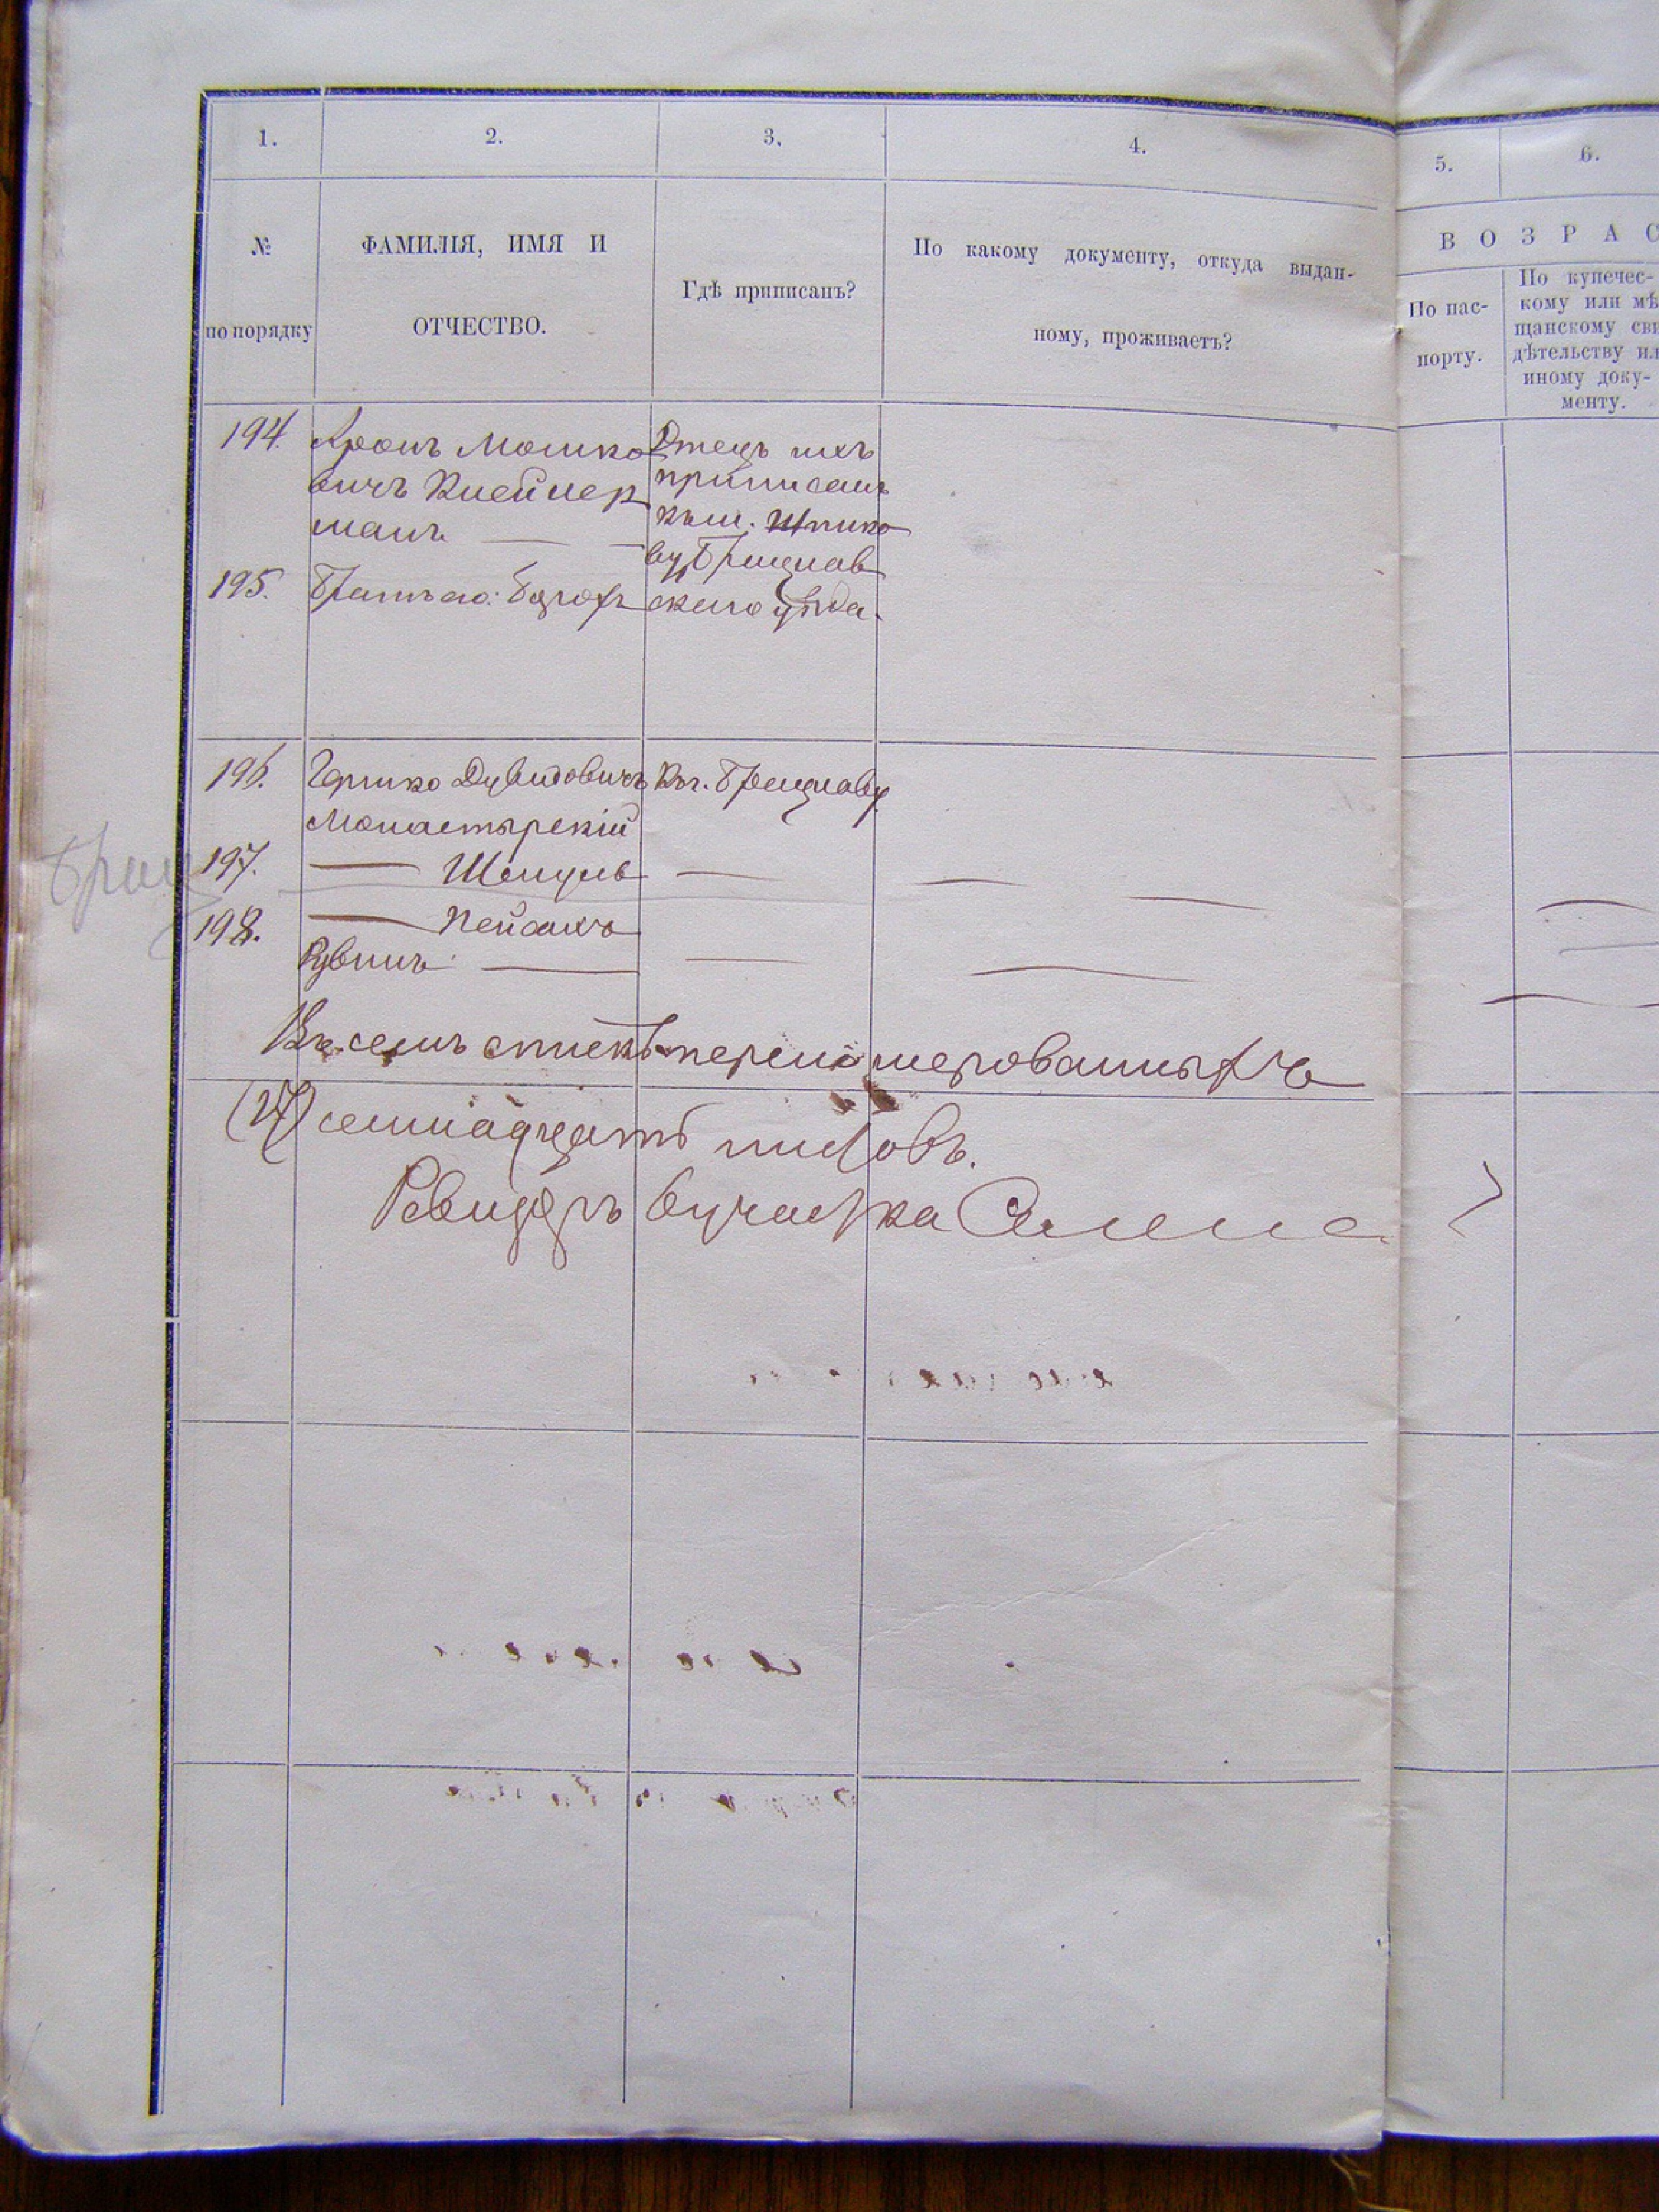 1. 2. 3. 4. 5. 6.
№
по порядку
ФАМИЛІЯ, ИМЯ И
ОТЧЕСТВО.
Гдѣ приписанъ?
По какому документу, откуда выдан-
ному, проживаетъ?
В О З Р А С
По пас-
порту.
По купечес-
кому или мѣ
щанскому сви
дѣтельству ил
иному доку-
менту.
194. Аронъ Мошко
вичъ Клейнер
манъ
Отецъ ихъ
приписанъ
къ м. Шпико
ву, Брацлав
скаго уѣзда.
195. Братъ его:
196. Гершко Дувидовичъ Къ г. Брацлаву.
Монастырскій
197. — Шмуль — — —
Брац
198. — Пейсахъ
Рувинъ — —
Въ семъ спискѣ перенумерованныхъ
(17) семнадцать листовъ.
Ревизоръ 6 участка